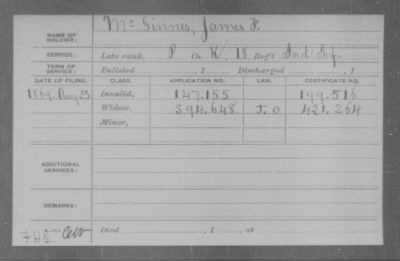 NAME OF SOLDIER: McGinnis, James F.
SERVICE: Late rank, P Co. K, 18 Reg't Ind Inf.
TERM OF SERVICE: Enlisted , 1 Discharged , 1
DATE OF FILING. CLASS. APPLICATION NO. LAW. CERTIFICATE NO.
1869. Aug 23 Invalid, 147.155 199.516
Widow, 594.648 I.O 421.264
Minor,
ADDITIONAL SERVICES:
REMARKS:
Died , 1 , at